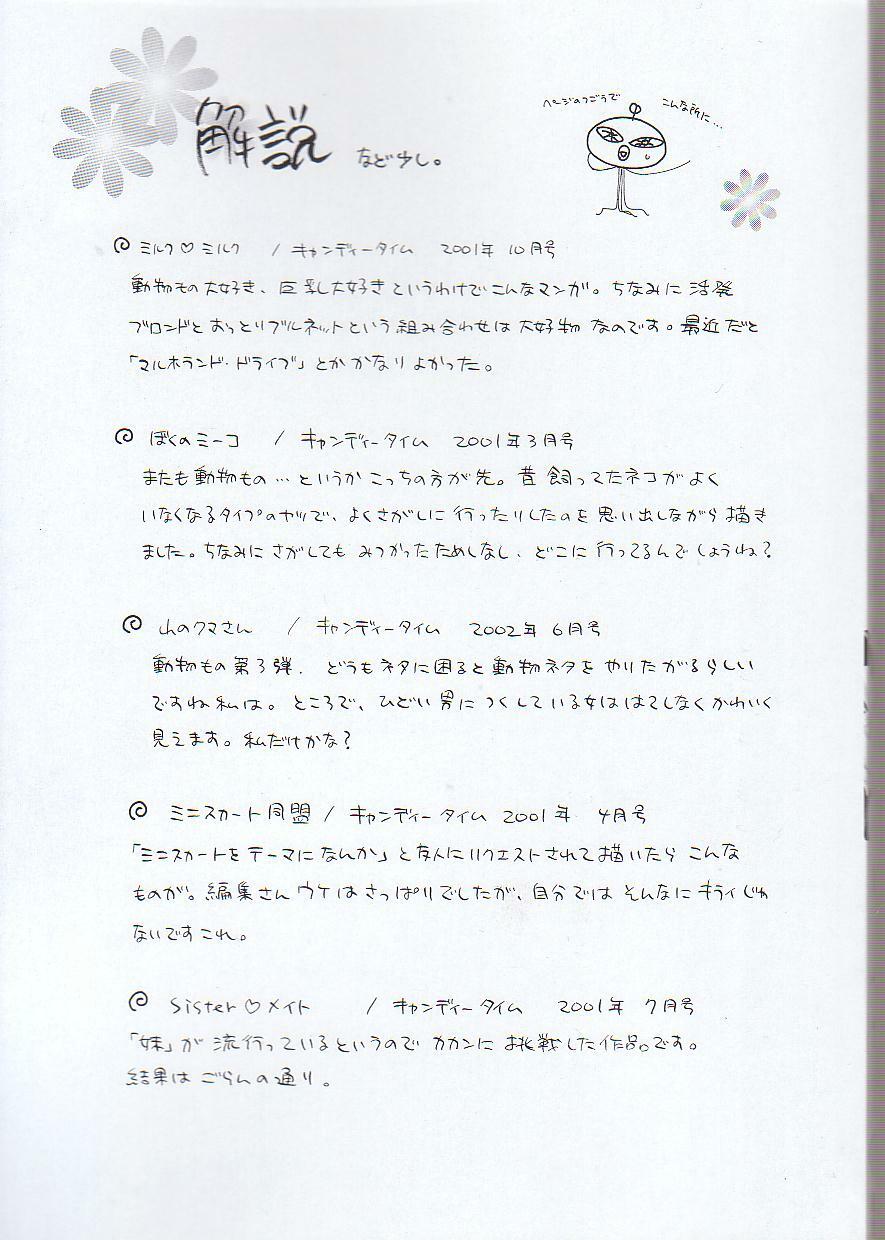 解説 など少し。
ページのつごうで
こんな所に…
ミルク♡ミルク / キャンディータイム 2001年 10月号
動物もの大好き、巨乳大好きというわけでこんなマンガ。ちなみに活発
ブロンドとおっとりブルネットという組み合わせは大好物なのです。最近だと
「マルホランド・ドライブ」とかかなりよかった。
ぼくのミーコ / キャンディータイム 2001年3月号
またも動物もの…というかこっちの方が先。昔飼ってたネコがよく
いなくなるタイプのヤツで、よくさがしに行ったりしたのを思い出しながら描き
ました。ちなみにさがしてもみつかったためしなし、どこに行ってるんでしょうね?
山のクマさん / キャンディータイム 2002年 6月号
動物もの第3弾。どうもネタに困ると動物ネタをやりたがるらしい
ですね私は。ところで、ひどい男につくしている女ははてしなくかわいく
見えます。私だけかな?
ミニスカート同盟 / キャンディータイム 2001年 4月号
「ミニスカートをテーマになんか」と友人にリクエストされて描いたらこんな
ものが。編集さんウケはさっぱりでしたが、自分ではそんなにキライじゃ
ないですこれ。
Sister♡メイト / キャンディータイム 2001年 7月号
「妹」が流行っているというのでカカンにお挑戦した作品。です。
結果はごらんの通り。